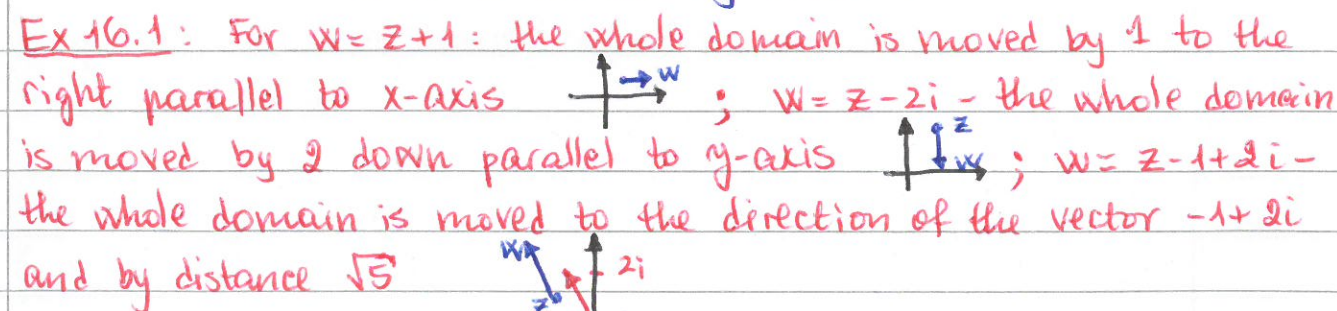 Ex 16.1: For w = z+1: the whole domain is moved by 1 to the
right parallel to x-axis w ; w = z-2i - the whole domain
is moved by 2 down parallel to y-axis z w ; w = z-1+2i-
the whole domain is moved to the direction of the vector -1+2i
and by distance √5 w z 2i